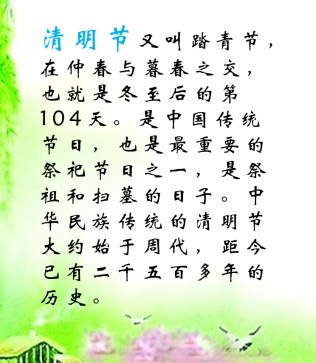 清明节又叫踏青节，
在仲春与暮春之交，
也就是冬至后的第
104天。是中国传统
节日，也是最重要的
祭祀节日之一，是祭
祖和扫墓的日子。中
华民族传统的清明节
大约始于周代，距今
已有二千五百多年的
历史。